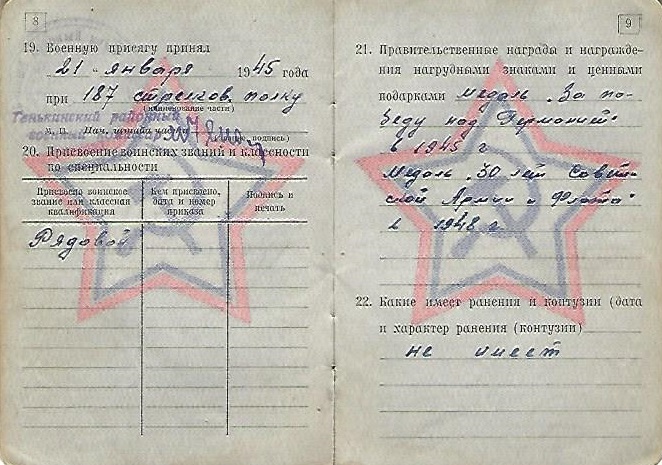 8
19. Военную присягу принял
21 " января 1945 года
при 187 стрелков. полку
(наименование части)
Тенькинский районный
военный
м. п. Нач. штаба части
подпись)
20. Присвоение воинских званий и классности
по специальности
Присвоено воинское звание или классная квалификация
Кем присвоено, дата и номер приказа
Подпись и печать
Рядовой
9
21. Правительственные награды и награжде-
ния нагрудными знаками и ценными
подарками медаль "За по-
беду над Германией"
в 1945 г
Медаль "30 лет Совет-
ской Армии и Флота"
в 1948 г.
22. Какие имеет ранения и контузии (дата
и характер ранения (контузии)
не имеет